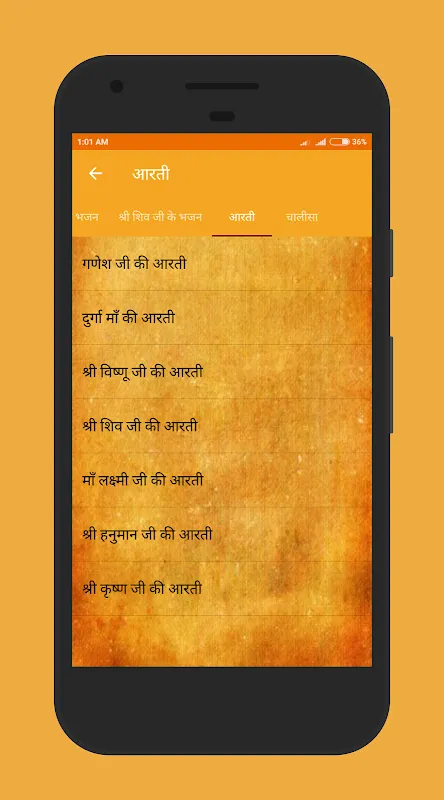 1:01 AM 36%
आरती
भजन श्री शिव जी के भजन आरती चालीसा
गणेश जी की आरती
दुर्गा माँ की आरती
श्री विष्णू जी की आरती
श्री शिव जी की आरती
माँ लक्ष्मी जी की आरती
श्री हनुमान जी की आरती
श्री कृष्ण जी की आरती